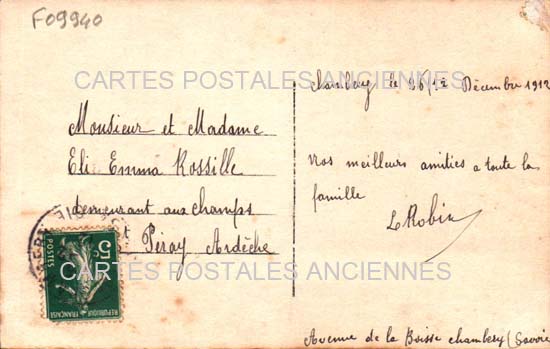 F09940
CARTES POSTALES ANCIENNES
Chambery le 26/12 Décembre 1912
Monsieur et Madame
Eli Emma Rossille
demeurant aux champs
St Péray Ardèche
Vos meilleurs amities a toute la
famille
L Robin
5c
POSTES
REPUBLIQUE FRANÇAISE
CARTES POSTALES ANCIENNES
Avenue de la Boisse chambery (Savoie